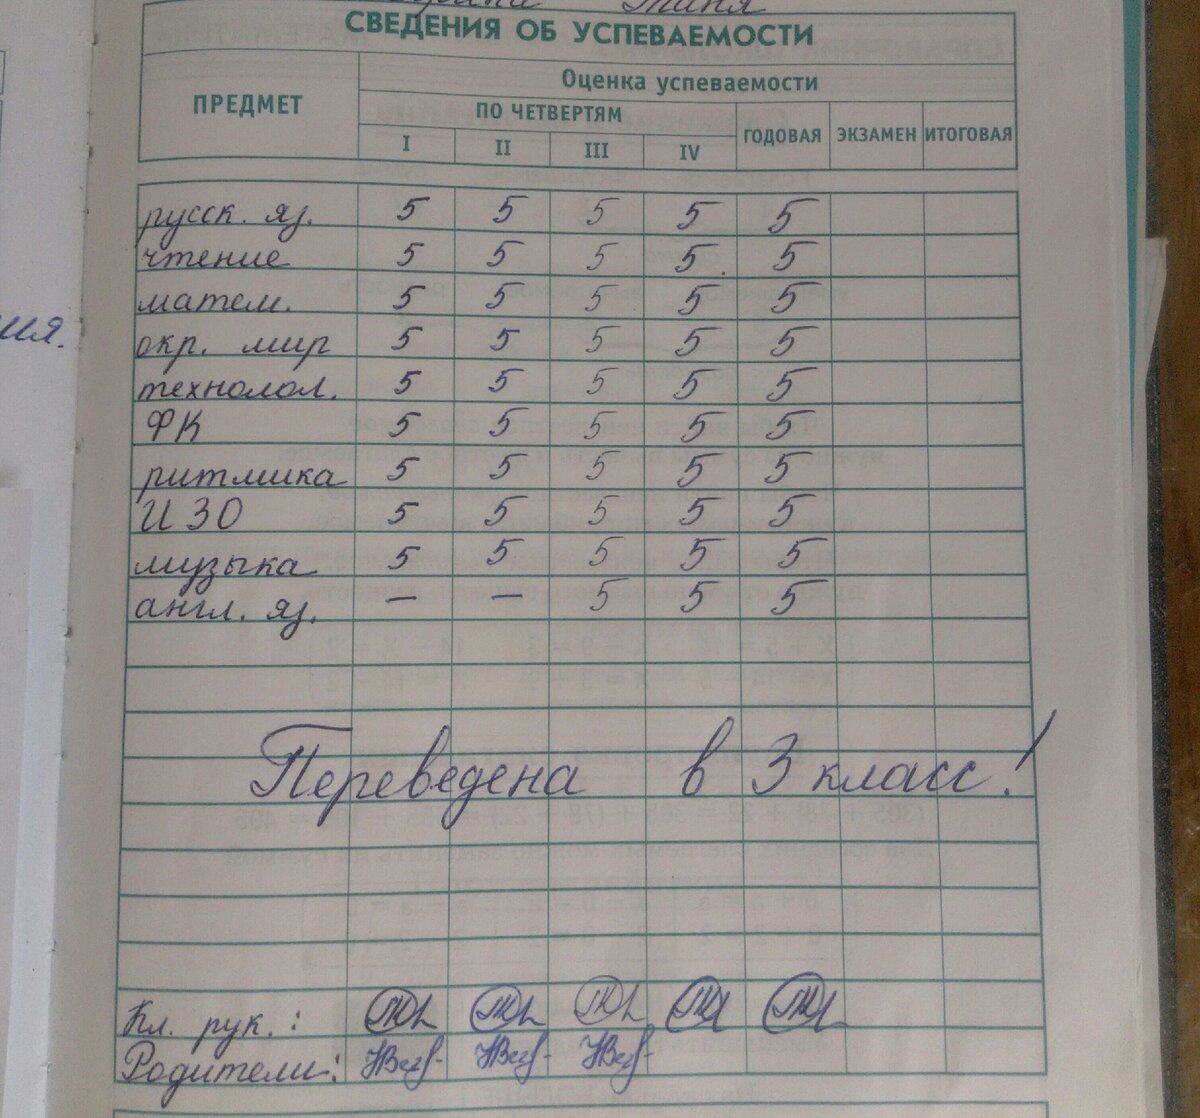 Таня
СВЕДЕНИЯ ОБ УСПЕВАЕМОСТИ
ПРЕДМЕТ
Оценка успеваемости
ПО ЧЕТВЕРТЯМ
ГОДОВАЯ ЭКЗАМЕН ИТОГОВАЯ
I II III IV
русск. яз. 5 5 5 5 5
чтение 5 5 5 5 5
матем. 5 5 5 5 5
ия.
окр. мир 5 5 5 5 5
технолол. 5 5 5 5 5
ФК 5 5 5 5 5
ритмика 5 5 5 5 5
ИЗО 5 5 5 5 5
музыка 5 5 5 5 5
англ. яз. — — 5 5 5
Переведена в 3 класс!
Кл. рук.:
Родители: